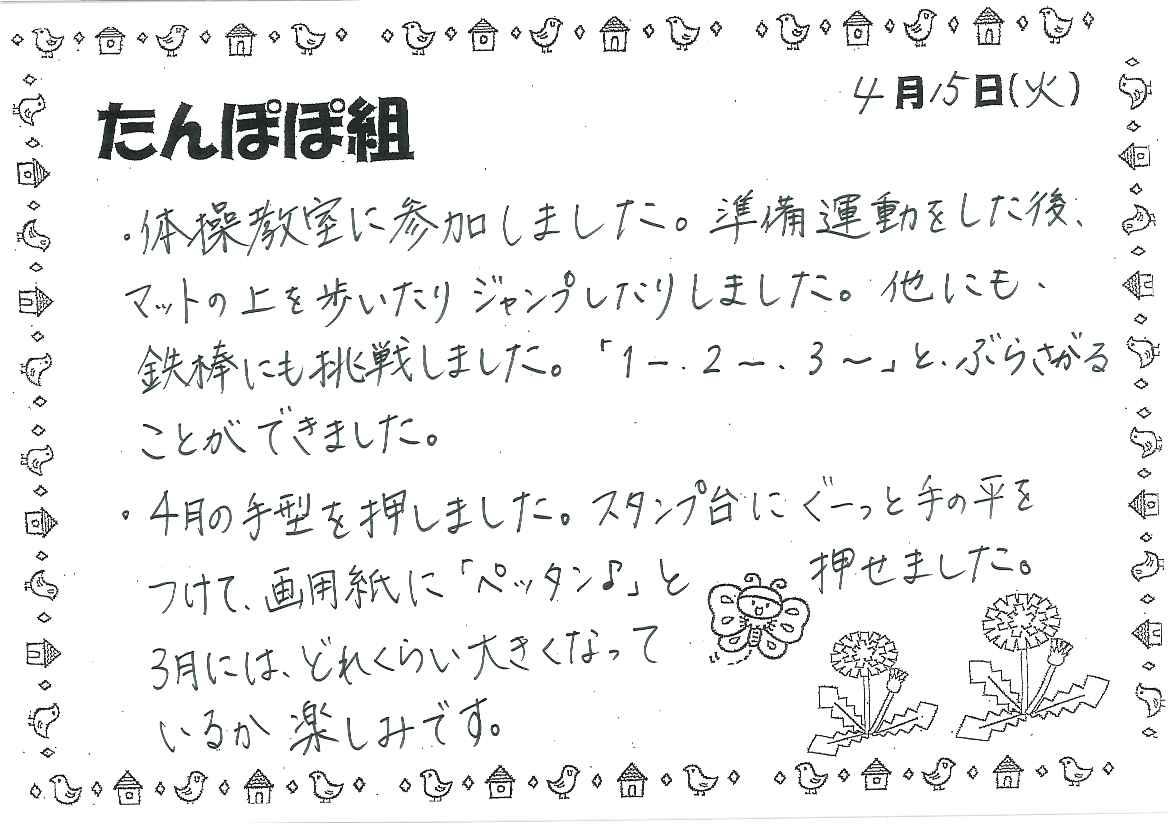 4月15日(火)
たんぽぽ組
・体操教室に参加しました。準備運動をした後、
マットの上を歩いたりジャンプしたりしました。他にも、
鉄棒にも挑戦しました。「1ー、2〜、3〜」と、ぶらさがる
ことができました。
・4月の手型を押しました。スタンプ台にぐーっと手の平を
つけて、画用紙に「ペッタン♪」と 押せました。
3月には、どれくらい大きくなって
いるか楽しみです。